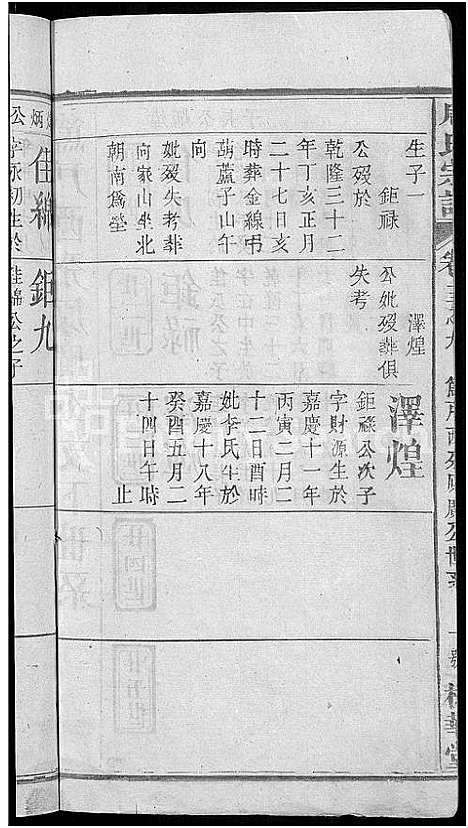 生子一
鉅祿
公歿於
乾隆三十二
年丁亥正月
二十七日亥
時葬金線弔
葫蘆子山午
向
妣歿失考葬
向家山坐北
朝南爲塋
澤煌
公妣歿葬俱
失考
澤煌
鉅祿公次子
字財源生於
嘉慶十一年
丙寅二月二
十二日酉時
妣李氏生於
嘉慶十八年
癸酉五月二
十四日午時
止
佳綿
鉅九
佳綿公之子